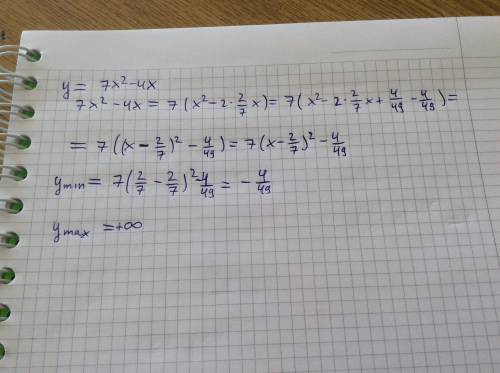 y = 7x² - 4x
7x² - 4x = 7(x² - 2·2/7x) = 7(x² - 2·2/7x + 4/49 - 4/49) =
= 7((x - 2/7)² - 4/49) = 7(x - 2/7)² - 4/49
y min = 7(2/7 - 2/7)² - 4/49 = - 4/49
y max = +∞